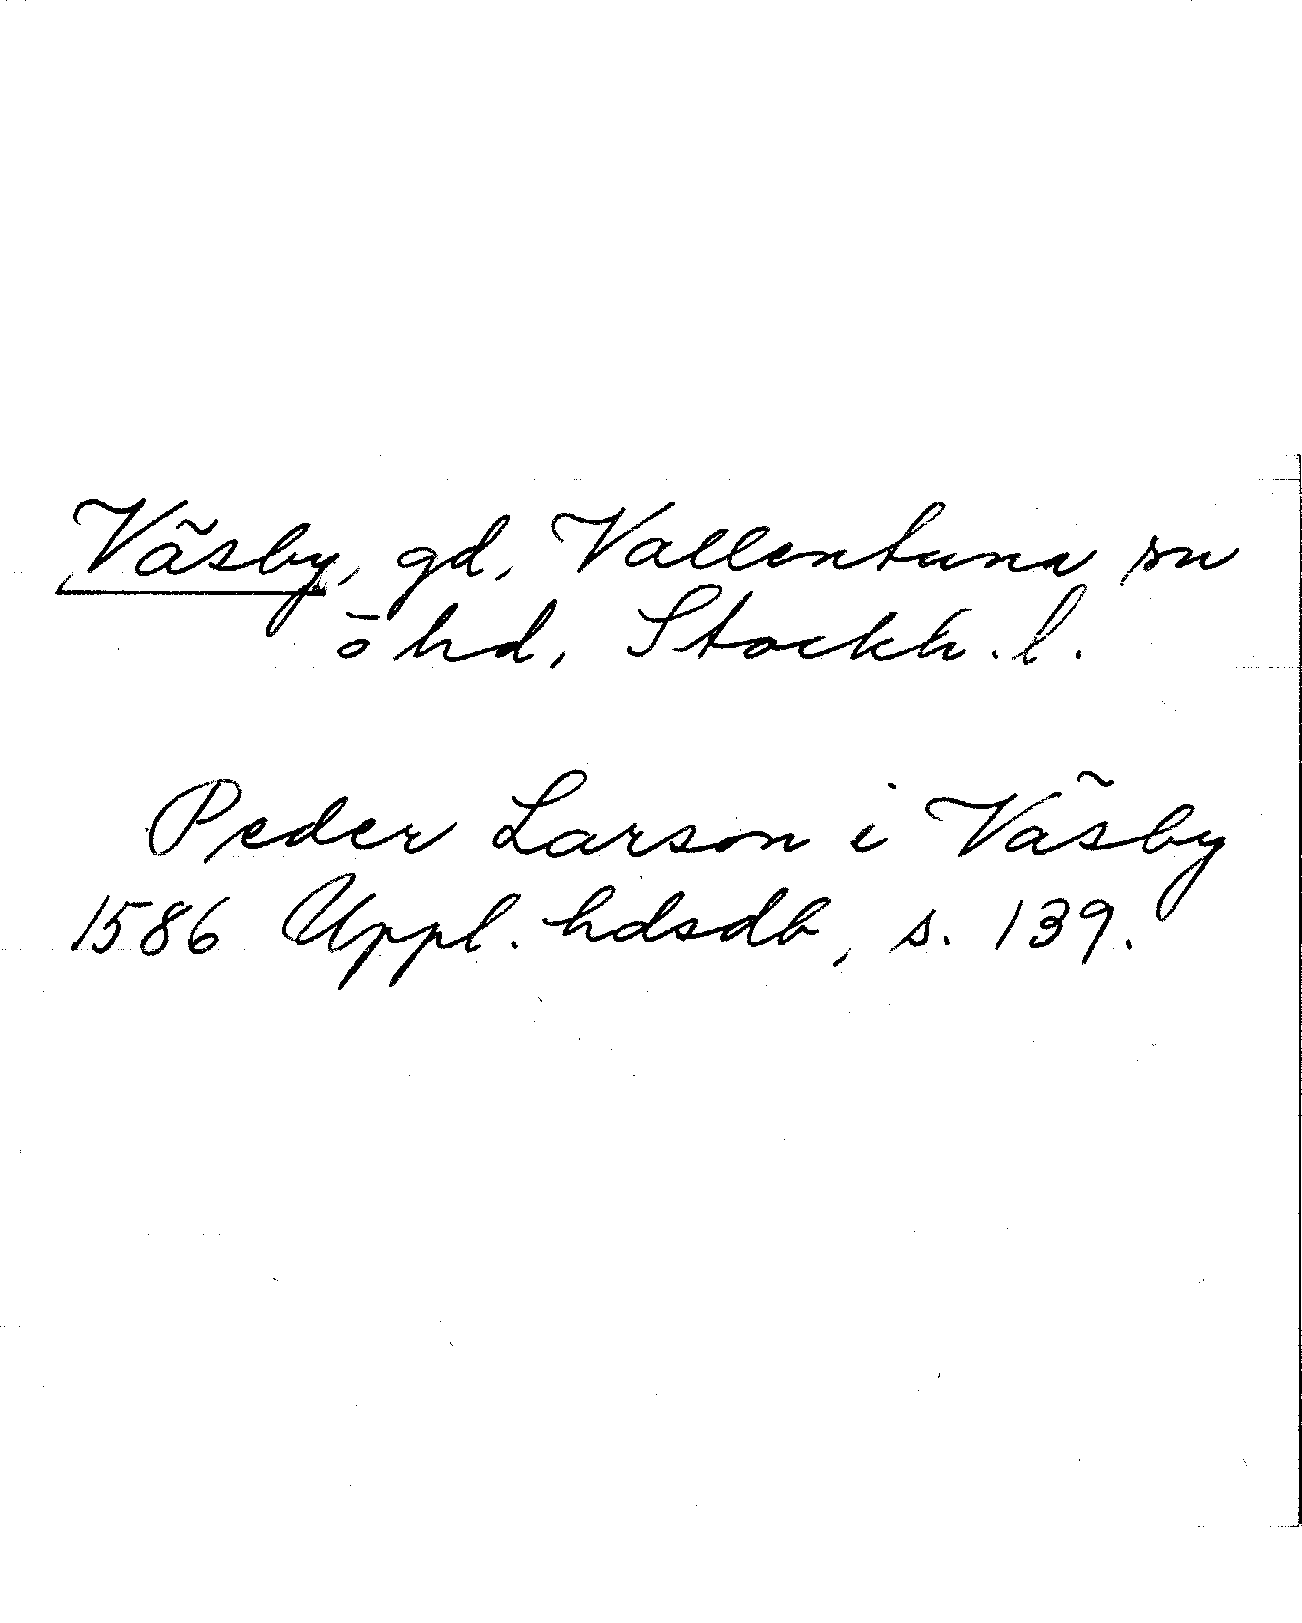 Väsby, gd, Vallentuna sn
ö hd, Stockh. l.
Peder Larson i Väsby
1586 Uppl. hdsdb, s. 139.